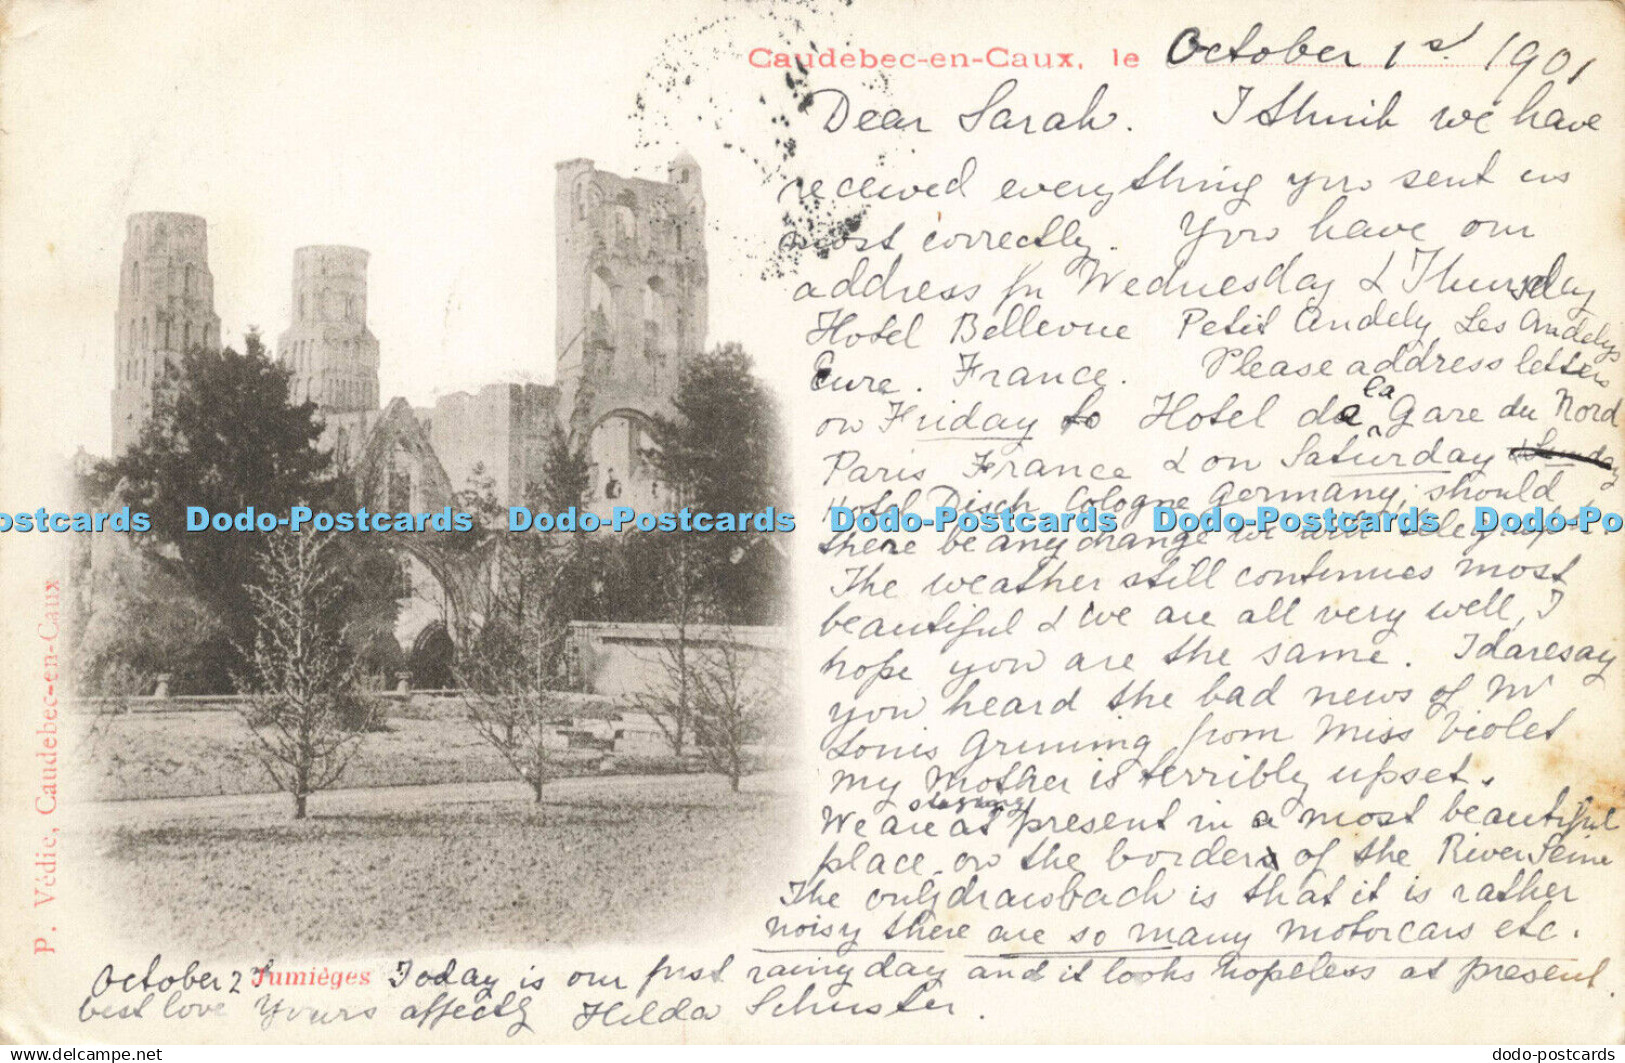 Caudebec-en-Caux, le October 1st 1901
Dear Sarah. I think we have
received everything you sent us
most correctly. You have our
address for Wednesday & Thursday
Hotel Bellevue Petit Andely Les Andelys
Eure. France. Please address letters
on Friday to Hotel de la Gare du Nord
Paris France & on Saturday
Hotel Disch Cologne Germany; should
there be any change we will telegraph.
The weather still continues most
beautiful & we are all very well, I
hope you are the same. I daresay
you heard the bad news of Mr
Louis Gruning from Miss Violet
my Mother is terribly upset.
We are staying at present in a most beautiful
place on the border of the River Seine
The only drawback is that it is rather
noisy there are so many motorcars etc.
October 2nd Jumièges Today is our first rainy day and it looks hopeless at present.
best love Yours affectly Hilda Schuster.
P. Védie, Caudebec-en-Caux
Dodo-Postcards Dodo-Postcards Dodo-Postcards Dodo-Postcards Dodo-Postcards
www.dodo-postcards.com
dodo-postcards